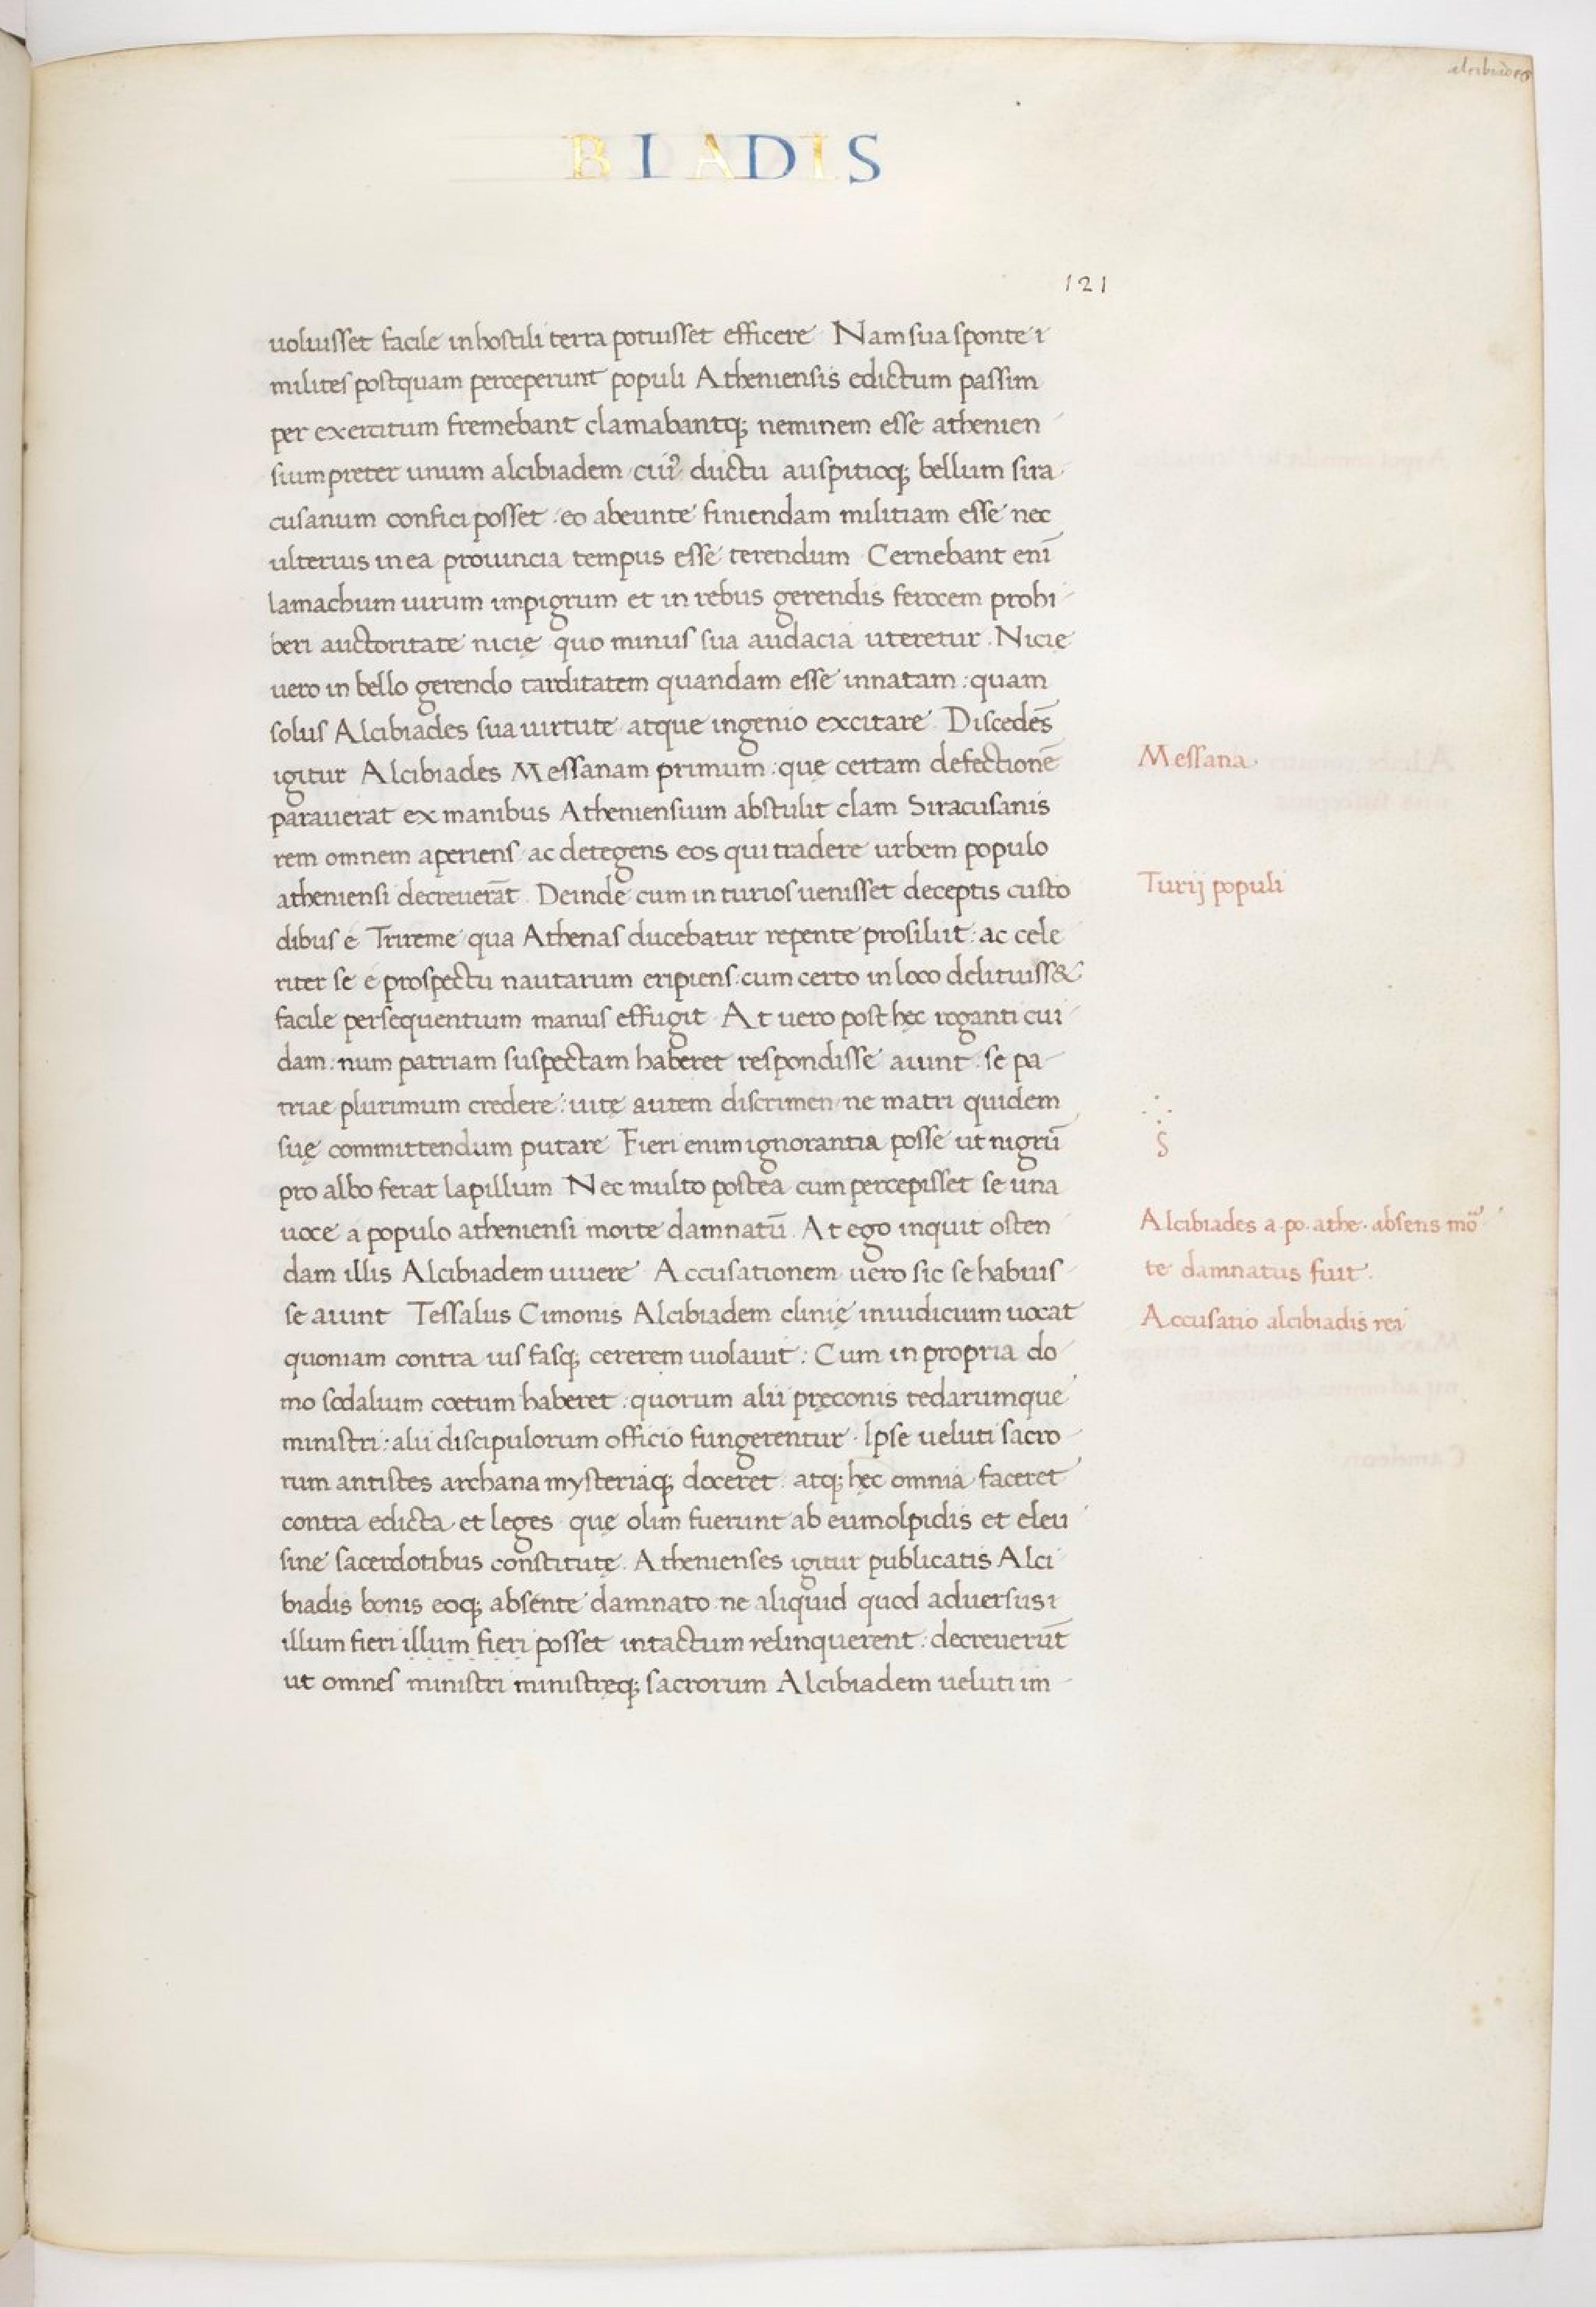 alcibiades
BIADIS
121
uoluisset facile in hostili terra potuisset efficere Nam sua sponte i
milites postquam perceperunt populi Atheniensis edictum passim
per exercitum fremebant clamabantq; neminem esse athenien
sium preter unum alcibiadem cuiꝰ ductu auspitioq; bellum sira
cusanum confici posset : eo abeunte finiendam militiam esse nec
ulterius in ea prouincia tempus esse terendum Cernebant eni̅
lamachum uirum impigrum et in rebus gerendis ferocem prohi
beri auctoritate nicię quo minus sua audacia uteretur . Nicię
uero in bello gerendo tarditatem quandam esse innatam : quam
solus Alcibiades sua uirtute atque ingenio excitare Discede̅s
igitur Alcibiades Messanam primum : quę certam defectione̅
Messana
parauerat ex manibus Atheniensium abstulit clam Siracusanis
rem omnem aperiens ac detegens eos qui tradere urbem populo
atheniensi decreuera̅t . Deinde cum in turios uenisset deceptis custo
Turij populi
dibus e Trireme qua Athenas ducebatur repente prosiluit : ac cele
riter se e prospectu nautarum eripiens : cum certo in loco delituiss&
facile persequentium manus effugit . At uero post hęc roganti cui
dam : num patriam suspectam haberet respondisse aiunt . se pa
triae plurimum credere : uitę autem discrimen ne matri quidem
suę committendum putare Fieri enim ignorantia posse ut nigru̅
S
pro albo ferat lapillum Nec multo postea cum percepisset se una
uoce a populo atheniensi morte damnatu̅ . At ego inquit osten
Alcibiades a po. athe. absens mo
dam illis Alcibiadem uiuere Accusationem uero sic se habuis
te damnatus fuit .
se aiunt Tessalus Cimonis Alcibiadem clinię in iudicium uocat
Accusatio alcibiadis rei
quoniam contra ius fasq; cererem uiolauit : Cum in propria do
mo sodalium coetum haberet : quorum alii pręconis tedarumque
ministri : alii discipulorum officio fungerentur . Ipse ueluti sacro
rum antistes archana mysteriaq; doceret . atq; hęc omnia faceret
contra edicta et leges quę olim fuerunt ab eumolpidis et eleu
sine sacerdotibus constitutę . Athenienses igitur publicatis Alci
biadis bonis eoq; absente damnato ne aliquid quod aduersus i
illum fieri illum fieri posset intactum relinquerent : decreueru̅t
ut omnes ministri ministręq; sacrorum Alcibiadem ueluti im